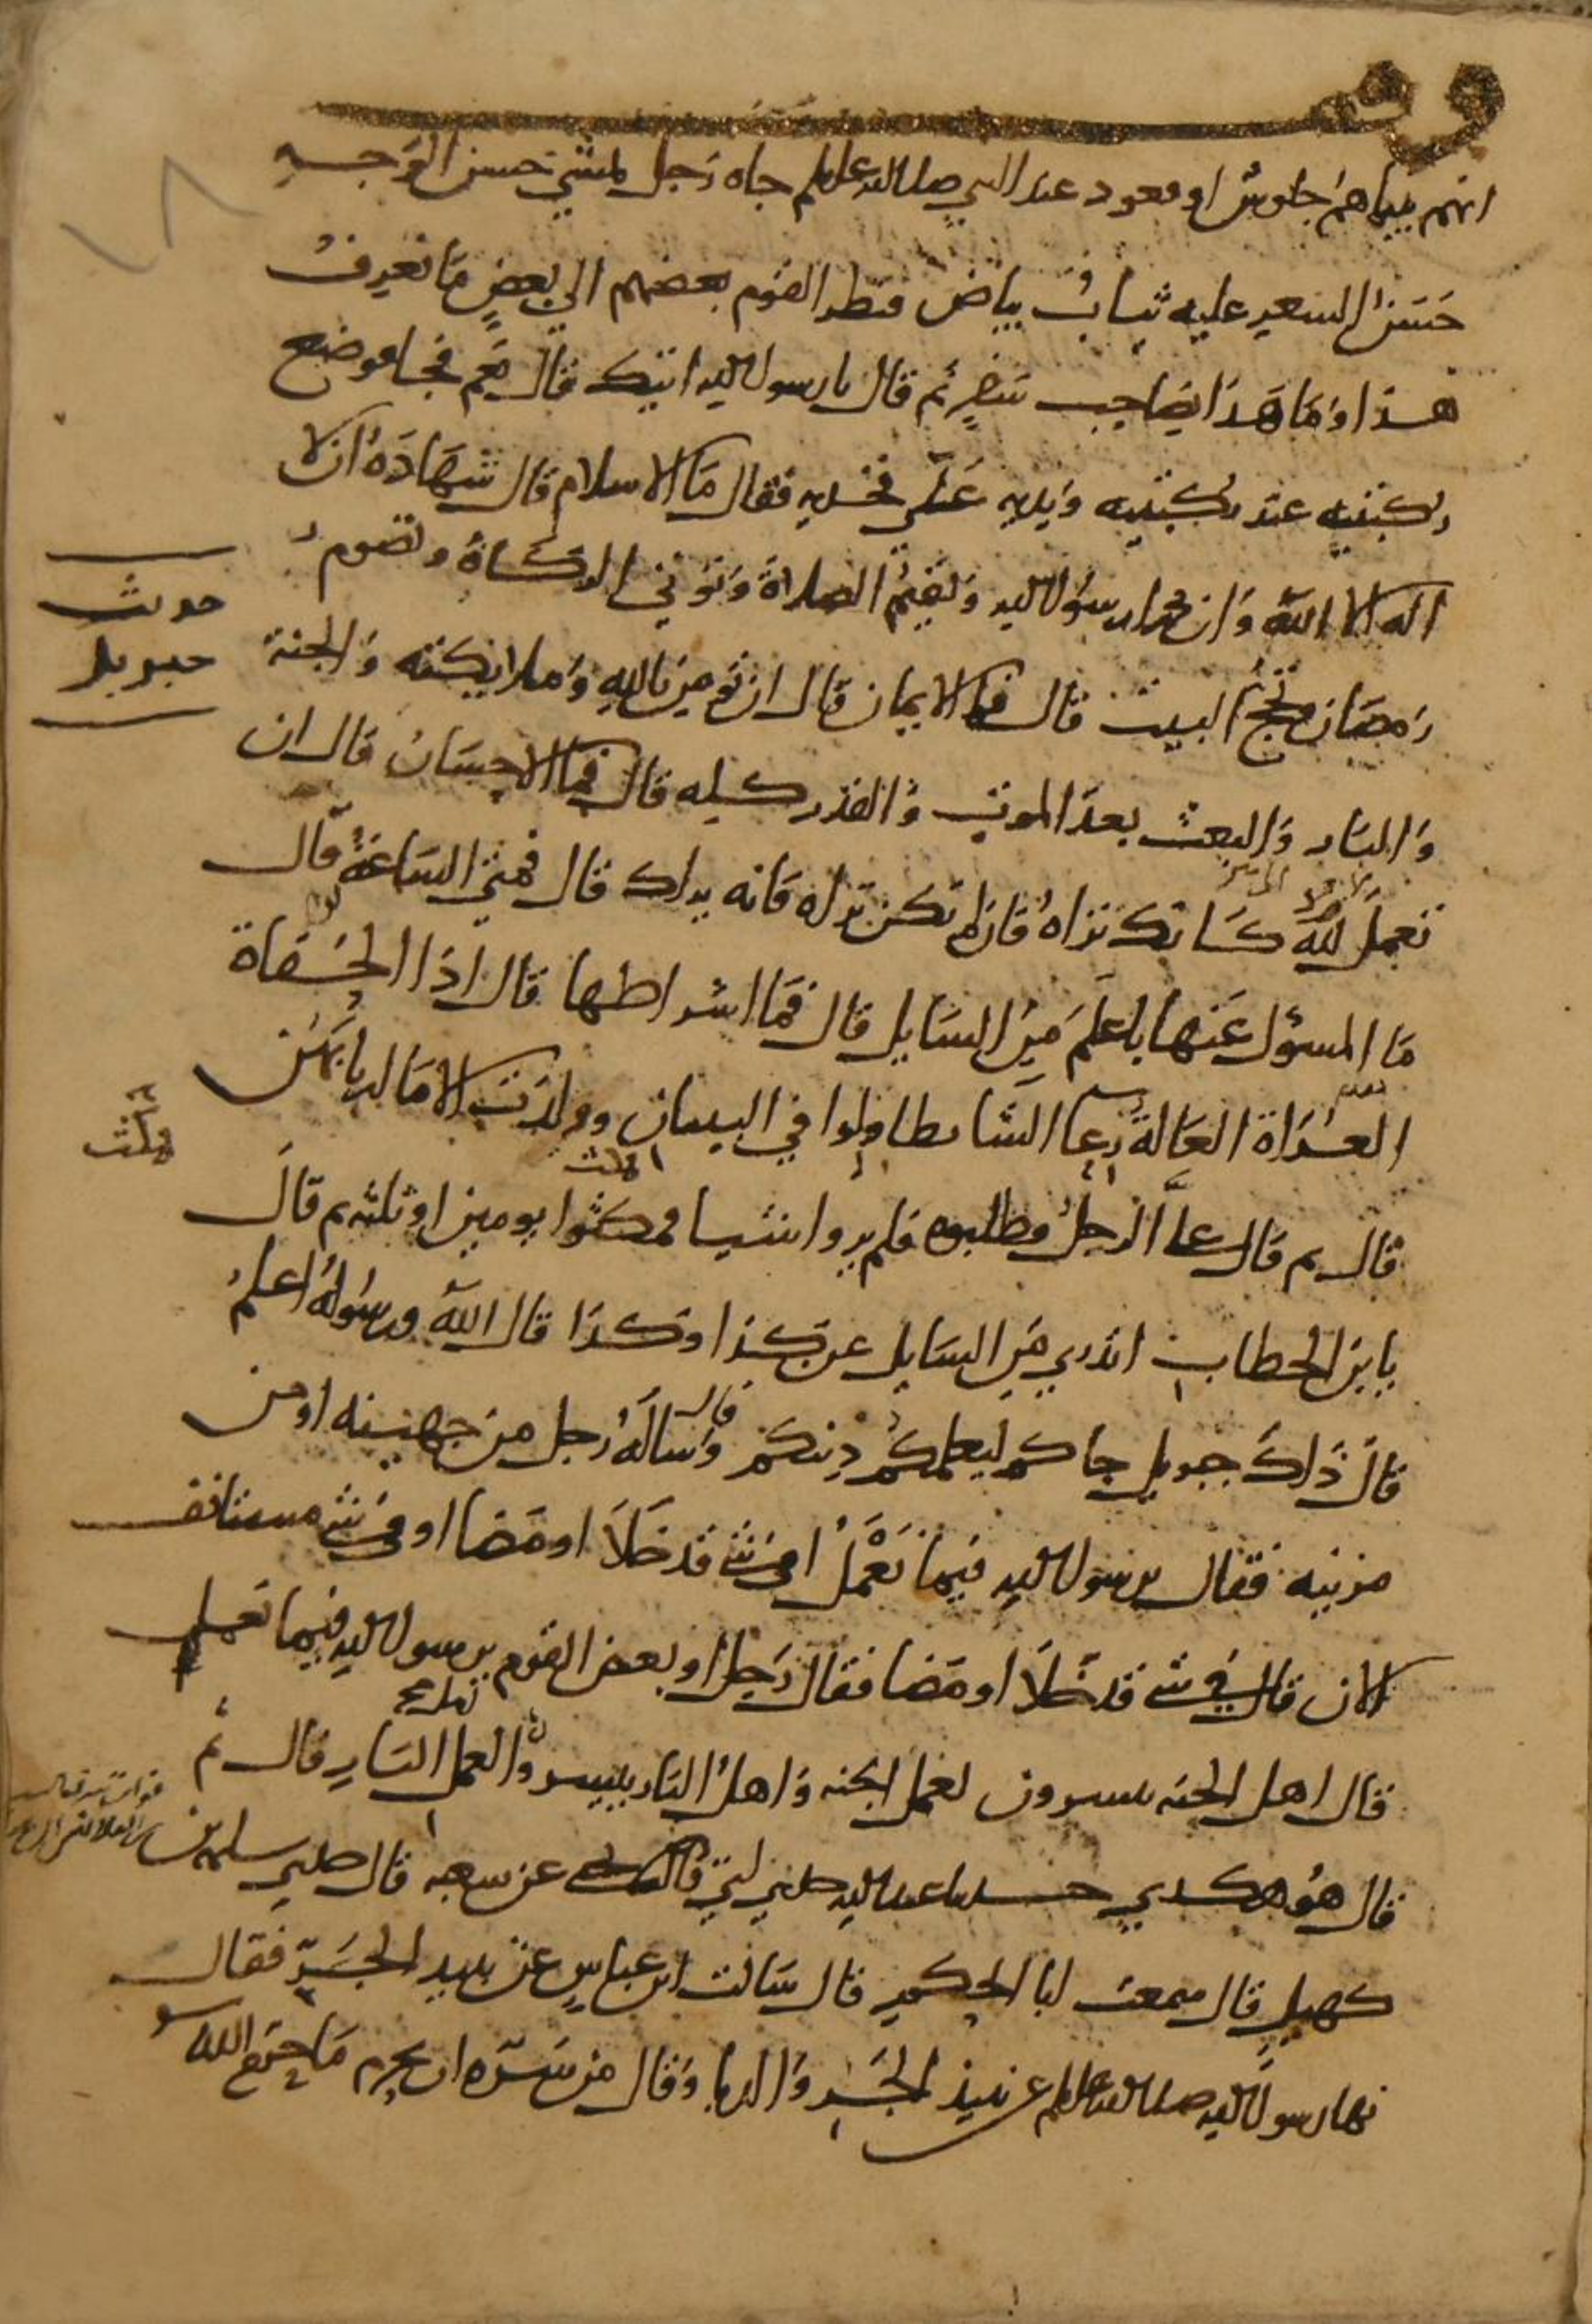 وقف
انهم بينما هم جلوس او قعود عند النبي صلى الله عليه وسلم جاه رجل يمشي حسن الوجه
حسن الشعر عليه ثياب بياض فنظر القوم بعضهم الى بعض ما نعرف
هذا وما هذا بصاحب سفر ثم قال يا رسول الله اتيك قال نعم فجا فوضع
ركبتيه عند ركبتيه ويديه على فخذيه فقال ما الاسلام قال شهادة ان لا
اله الا الله وان محمدا رسول الله وتقيم الصلاة وتوتي الزكاة وتصوم
رمضان وتحج البيت قال فما الايمان قال ان تومن بالله وملايكته والجنة
والنار والبعث بعد الموت والقدر كله قال فما الاحسان قال ان
تعمل لله كانك تراه فان لم تكن تراه فانه يراك قال فمتى الساعة قال
ما المسؤل عنها باعلم من السايل قال فما اشراطها قال اذا الحفاة
العراة العالة رعا الشا تطاولوا في البنيان وولدت الاما اربابهن
قال ثم قال علي الرجل فطلبوه فلم يروا شيا فمكثوا يومين او ثلثه ثم قال
يا بن الخطاب اتدري من السايل عن كذا وكذا قال الله ورسوله اعلم
قال ذاك جبريل جاكم ليعلمكم دينكم قال وساله رجل من جهينه او من
مزينه فقال يرسول الله فيما نعمل افي شي قد خلا او مضا او في شي مستانف
الان قال في شي قد خلا او مضا فقال رجل او بعض القوم يرسول الله فيما نعمل
قال اهل الجنه ييسرون لعمل الجنه واهل النار ييسروا لعمل النار قال ثم
قال هو هكدي حدثنا عبد الله حدثني ابي قال يحيى عن شعبه قال حدثني سلمه بن
كهيل قال سمعت ابا الحكم قال سالت ابن عباس عن نبيذ الجر فقال
نها رسول الله صلى الله عليه وسلم عن نبيذ الجر والدبا وقال من سره ان يحرم ما حرم الله
حديث
جبريل